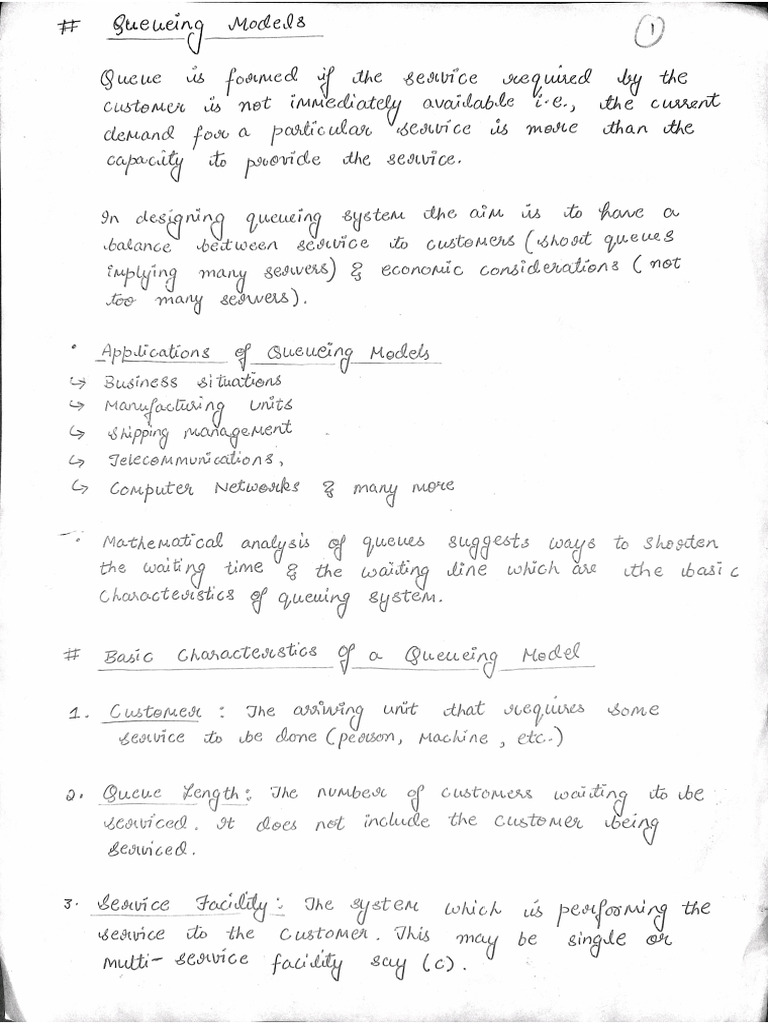 # Queueing Models
1
Queue is formed if the service required by the
customer is not immediately available i.e., the current
demand for a particular service is more than the
capacity to provide the service.
In designing queueing system the aim is to have a
balance between service to customers (short queues
implying many servers) & economic considerations (not
too many servers).
• Applications of Queueing Models
↪ Business situations
↪ Manufacturing units
↪ Shipping management
↪ Telecommunications,
↪ Computer Networks & many more
• Mathematical analysis of queues suggests ways to shorten
the waiting time & the waiting line which are the basic
characteristics of queuing system.
# Basic Characteristics of a Queueing Model
1. Customer : The arriving unit that requires some
service to be done (person, Machine, etc.)
2. Queue Length: The number of customers waiting to be
serviced. It does not include the customer being
serviced.
3. Service Facility: The system which is performing the
service to the customer. This may be single or
multi-service facility say (c).